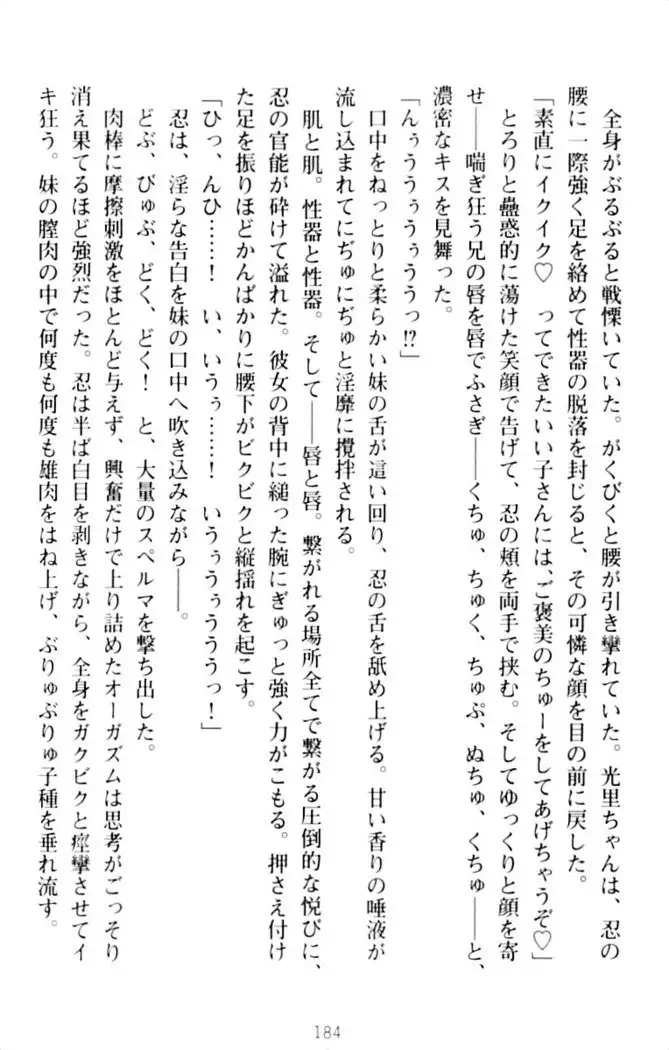 全身がぶるぶると戦慄いていた。がくびくと腰が引き攣れていた。光里ちゃんは、忍の
腰に一際強く足を絡めて性器の脱落を封じると、その可憐な顔を目の前に戻した。
「素直にイクイク♡　ってできたいい子さんには、ご褒美のちゅーをしてあげちゃうぞ♡」
とろりと蠱惑的に蕩けた笑顔で告げて、忍の頬を両手で挟む。そしてゆっくりと顔を寄
せ――喘ぎ狂う兄の唇を唇でふさぎ――くちゅ、ちゅく、ちゅぷ、ぬちゅ、くちゅ――と、
濃密なキスを見舞った。
「んぅううぅうぅううっ!?」
口中をねっとりと柔らかい妹の舌が這い回り、忍の舌を舐め上げる。甘い香りの唾液が
流し込まれてにぢゅにぢゅと淫靡に攪拌される。
肌と肌。性器と性器。そして――唇と唇。繋がれる場所全てで繋がる圧倒的な悦びに、
忍の官能が砕けて溢れた。彼女の背中に縋った腕にぎゅっと強く力がこもる。押さえ付け
た足を振りほどかんばかりに腰下がビクビクと縦揺れを起こす。
「ひっ、んひ……！　い、いうぅ……！　いうぅうぅうううっ！」
忍は、淫らな告白を妹の口中へ吹き込みながら――。
どぶ、びゅぶ、どく、どく！　と、大量のスペルマを撃ち出した。
肉棒に摩擦刺激をほとんど与えず、興奮だけで上り詰めたオーガズムは思考がごっそり
消え果てるほど強烈だった。忍は半ば白目を剥きながら、全身をガクビクと痙攣させてイ
キ狂う。妹の膣肉の中で何度も何度も雄肉をはね上げ、ぶりゅぶりゅ子種を垂れ流す。
184